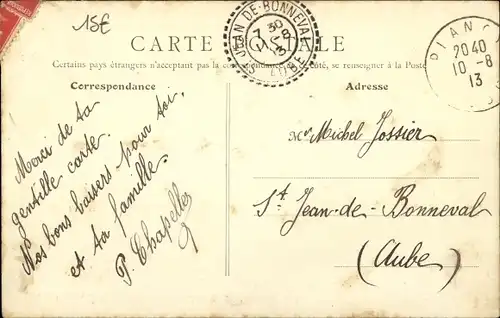 15€
CARTE POSTALE
Certains pays étrangers n'acceptant pas la correspondance de ce côté, se renseigner à la Poste
Correspondance
Adresse
Merci de ta
gentille carte.
Nos bons baisers pour toi.
et ta famille
P. Chapelle
Mr Michel Jossier
St Jean-de-Bonneval
(Aube)
ST JEAN-DE-BONNEVAL
AUBE
7 30
PIANCY
20 40
10 -8
13